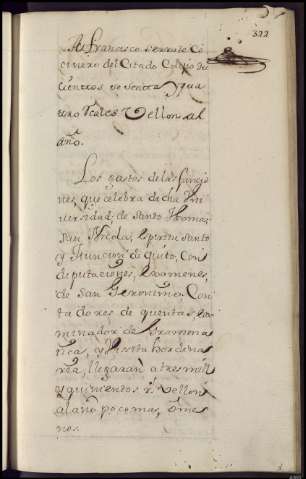 322
A Francisco Serrate Co
cinero del Citado Colexio du
cientos sesenta y qua
tro Reales Vellon al
año.
Los gastos de las funcio
nes, que celebra dicha Uni
versidad; de Santo Thomas
San Nicolas, Espiritu Santo
y Asuncion de quito, Con
diputaciones, Examenes,
de San Geronimo, Con
tadores de quentas, Exa
minador de Gramma
ticas, y Visita hordena
ria, llegaràn a tres mill
y quinientos r.s vellon
al año poco mas, o me
nos.